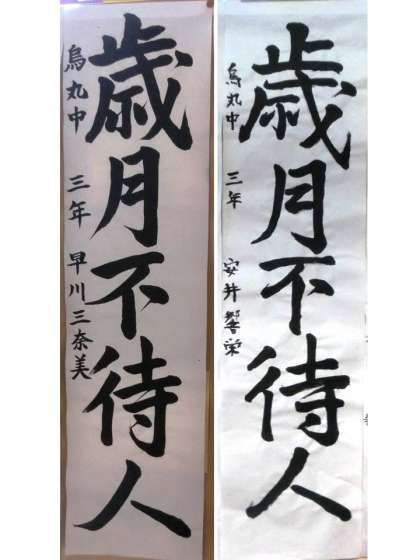 歳月不待人
烏丸中 三年 早川三奈美
歳月不待人
烏丸中 三年 安井響栄